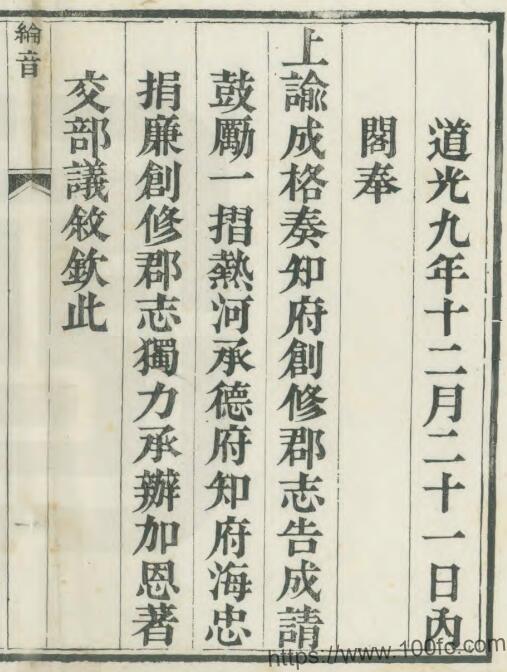 道光九年十二月二十一日內
閣奉
上諭成格奏知府創修郡志告成請
鼓勵一摺熱河承德府知府海忠
捐廉創修郡志獨力承辦加恩著
交部議敘欽此
綸音
一
https://www.100fc.com